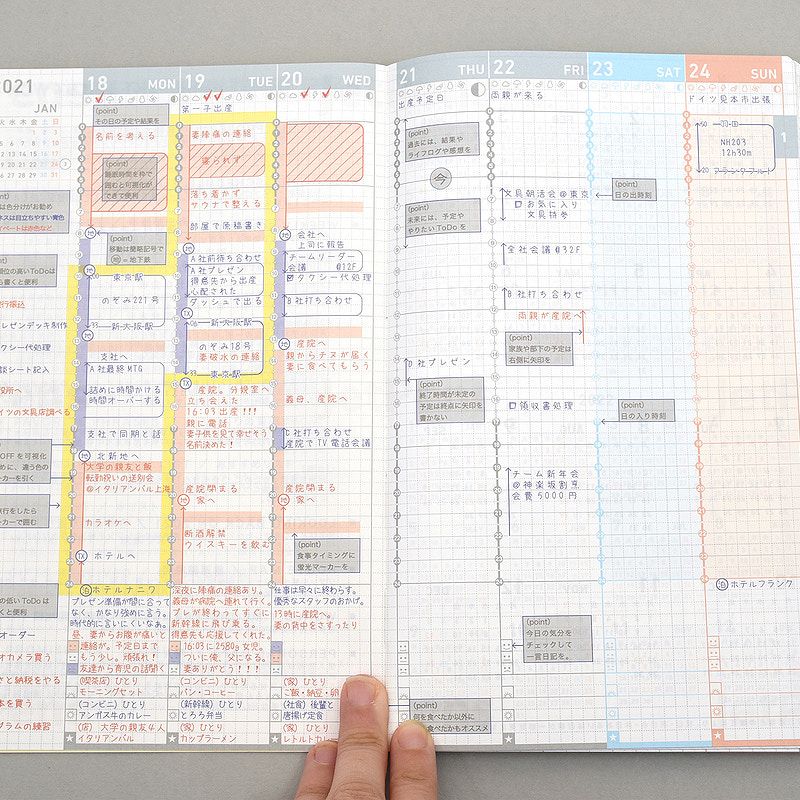 2021
JAN
18 MON
(point)
その日の予定や結果を
名前を考える
(point)
睡眠時間を枠で
囲むと可視化が
できて便利
(point)
移動は簡略記号で
地=地下鉄
地
東京駅
のぞみ221号
新大阪駅
地
支社へ
A社最終MTG
詰めに時間かける
時間オーバーする
支社で同期と話
地 北新地へ
大学の親友と飯
転勤祝いの送別会
@イタリアンバル上海
カラオケへ
TX ホテルへ
泊 ホテルナニワ
プレゼン準備が間に合って
なく、かなり強めに言う。
時代的に言いにくいなあ。
昼、妻からお腹が痛いと
連絡が。予定日まで
もう少し。頑張れ!
友達から育児の話聞く
(喫茶店) ひとり
モーニングセット
(コンビニ) ひとり
アンガス牛のカレー
(店) 大学の親友4人
イタリアンバル
19 TUE
第一子出産
妻陣痛の連絡
眠られず
落ち着かず
サウナで整える
部屋で原稿書き
地
A社前待ち合わせ
A社プレゼン
得意先から出産
心配された
ダッシュで出る
TX
新大阪駅
のぞみ18号
妻破水の連絡
東京駅
TX
産院。分娩室へ
立ち会えた
16:03 出産!!!
親に電話
妻子供を見て幸せそう
名前決めた!
産院閉まる
地 家へ
断酒解禁
ウイスキーを飲む
深夜に陣痛の連絡あり。
義母が病院へ連れて行く。
プレが終わってすぐに
新幹線に飛び乗る。
得意先も応援してくれた。
16:03に2580g 女児。
ついに俺、父になる。
妻ありがとう!!!!
(コンビニ) ひとり
パン・コーヒー
(新幹線) ひとり
とろろ弁当
(家) ひとり
カップラーメン
20 WED
地 会社へ
上司に報告
チームリーダー
会議 @12F
タクシー代処理
B社打ち合わせ
地
産院へ
親からチヌが届く
妻に食べてもらう
義母、産院へ
C社打ち合わせ
産院でTV電話会議
産院閉まる
地 家へ
(point)
食事タイミングに
蛍光マーカーを
仕事は早々に終わらす。
優秀なスタッフのおかげ。
13時に産院へ。
妻の背中をさすったり
(家) ひとり
ご飯・納豆・卵
(社食) 後輩と
唐揚げ定食
(家) ひとり
レトルトカレー
21 THU
出産予定日
(point)
過去には、結果や
ライフログや感想を
今
(point)
未来には、予定や
やりたいToDoを
D社プレゼン
(point)
終了時間が未定の
予定は終点に矢印を
書かない
(point)
何を食べたか以外に
食べたかもオススメ
22 FRI
両親が来る
文具朝活会@東京
お気に入り
文具持参
全社会議@32F
B社打ち合わせ
両親が産院へ
(point)
家族や部下の予定は
右側に矢印を
領収書処理
チーム新年会
@神楽坂割烹
会費5000円
(point)
今日の気分を
チェックして
一言日記を。
23 SAT
(point)
日の出時刻
(point)
日の入り時刻
24 SUN
ドイツ見本市出張
NH203
12h30m
フランクフルト
泊 ホテルフランク
1